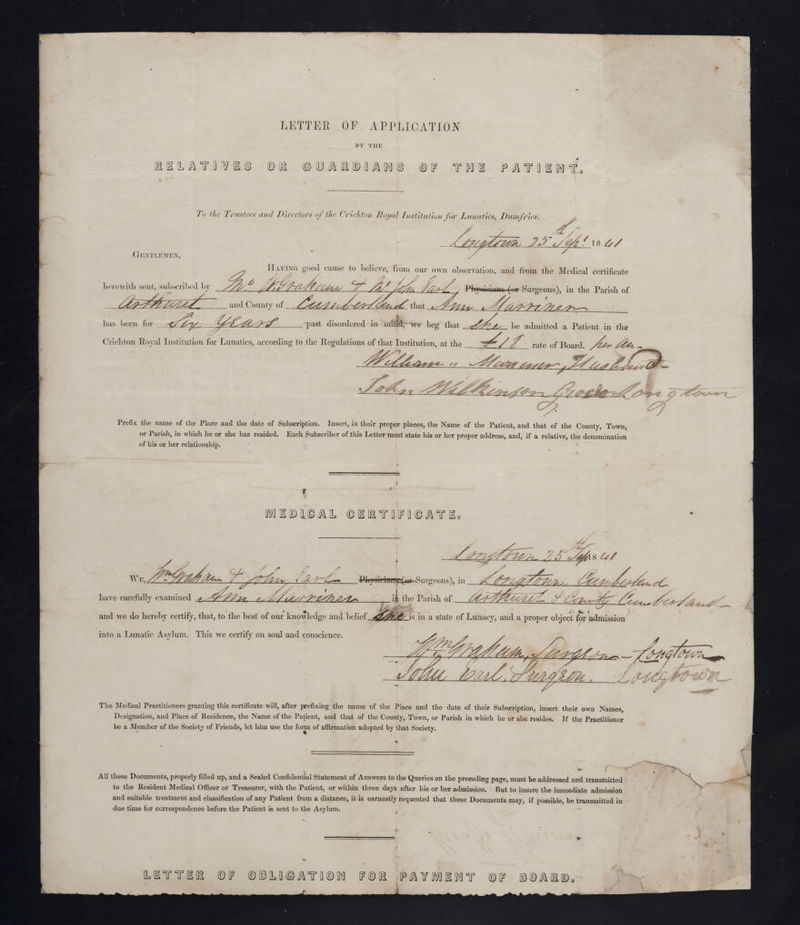 LETTER OF APPLICATION
BY THE
RELATIVES OR GUARDIANS OF THE PATIENT.
To the Trustees and Directors of the Crichton Royal Institution for Lunatics, Dumfries.
Longtown 25th Sept 1841
GENTLEMEN,
HAVING good cause to believe, from our own observation, and from the Medical certificate
herewith sent, subscribed by Mr. W. Graham & Mr John Earl, Physicians (or Surgeons), in the Parish of
Arthuret and County of Cumberland that Ann Marriner
has been for Six Years past disordered in mind, we beg that she be admitted a Patient in the
Crichton Royal Institution for Lunatics, according to the Regulations of that Institution, at the £18 rate of Board. per an-
William Marriner, Husband-
John Wilkinson Grocer Longtown
Prefix the name of the Place and the date of Subscription. Insert, in their proper places, the Name of the Patient, and that of the County, Town,
or Parish, in which he or she has resided. Each Subscriber of this Letter must state his or her proper address, and, if a relative, the denomination
of his or her relationship.
MEDICAL CERTIFICATE.
Longtown 25th Sep 1841
WE, Wm Graham & John Earl Physicians (or Surgeons), in Longtown Cumberland
have carefully examined Ann Marriner in the Parish of Arthuret & County Cumberland
and we do hereby certify, that, to the best of our knowledge and belief she is in a state of Lunacy, and a proper object for admission
into a Lunatic Asylum. This we certify on soul and conscience.
Wm Graham, Surgeon - Longtown
John Earl, Surgeon. Longtown
The Medical Practitioners granting this certificate will, after prefixing the name of the Place and the date of their Subscription, insert their own Names,
Designation, and Place of Residence, the Name of the Patient, and that of the County, Town, or Parish in which he or she resides. If the Practitioner
be a Member of the Society of Friends, let him use the form of affirmation adopted by that Society.
All these Documents, properly filled up, and a Sealed Confidential Statement of Answers to the Queries on the preceding page, must be addressed and transmitted
to the Resident Medical Officer or Treasurer, with the Patient, or within three days after his or her admission. But to insure the immediate admission
and suitable treatment and classification of any Patient from a distance, it is earnestly requested that these Documents may, if possible, be transmitted in
due time for correspondence before the Patient is sent to the Asylum.
LETTER OF OBLIGATION FOR PAYMENT OF BOARD.